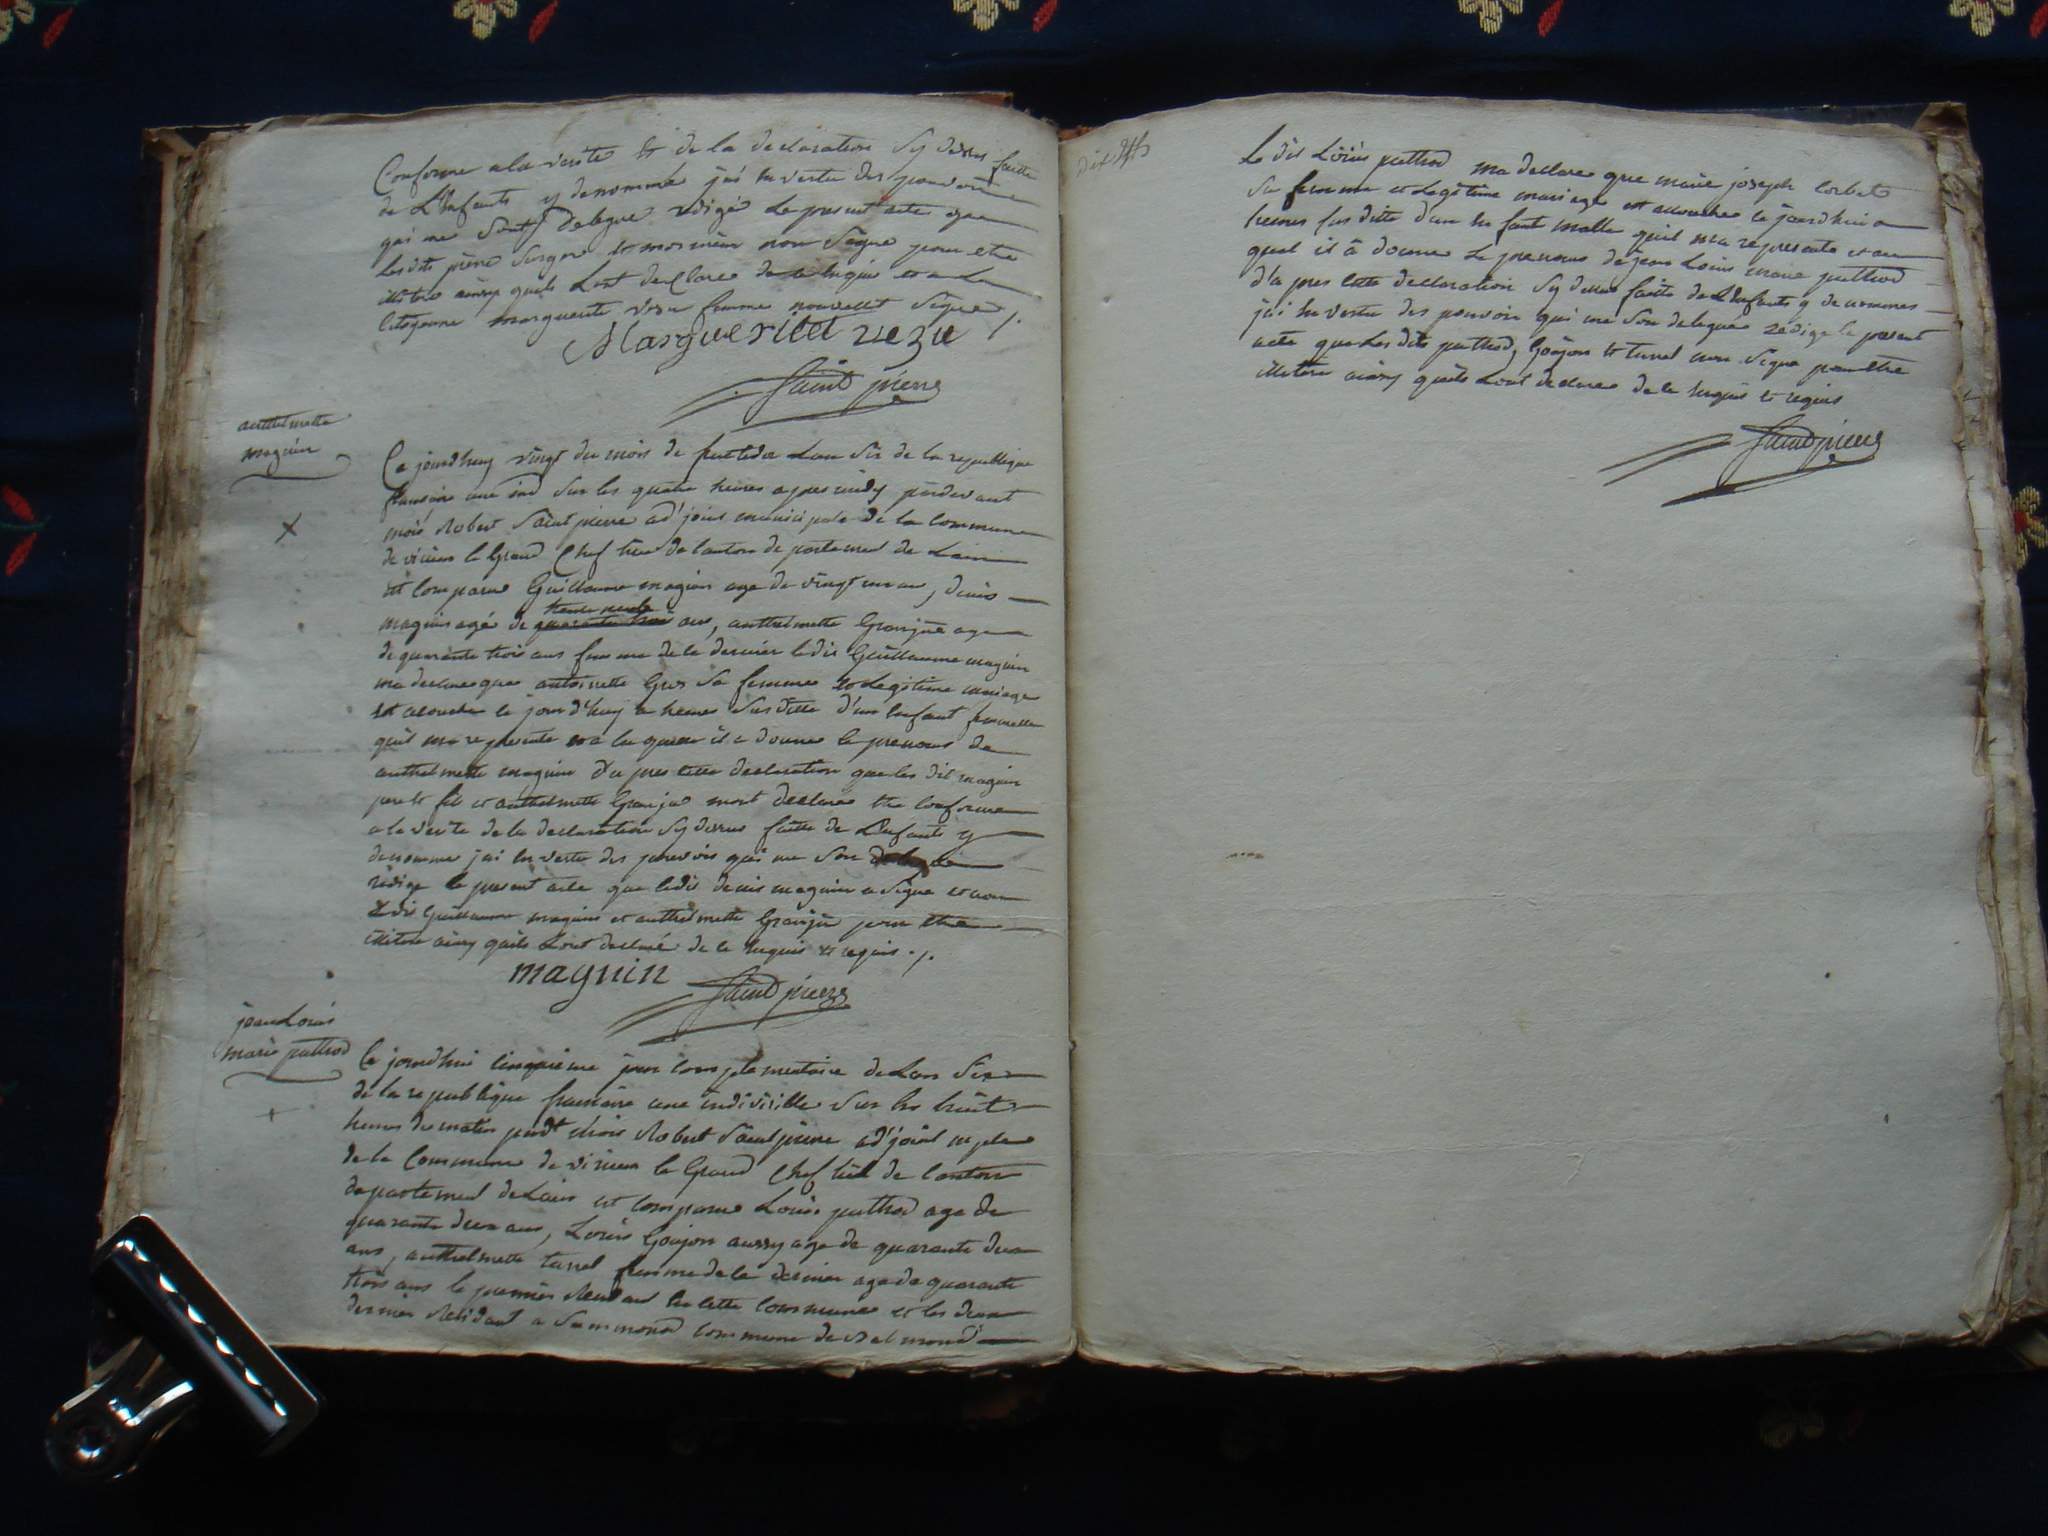 Conforme a la verité et de la declaration sy desus faitte
de L'Enfants y denommé j'ai en vertu des pouvoirs
qui me sont delegué redigé le present acte que
lesdits pierre et non signe pour etre
illitere ainsy quils Lont declare de le enquis et a La
Citoyenne marguerite vezu femme signe
Margueritte vezu
Saint pierre
anthelmette
maguin
Ce jourdhuy vingt du mois de fructidor Lan six de la republique
francoise une ind sur les quatre heures apres midy pardevant
mois Robert Saint pierre ad'joint municipale de la commune
de virieu le Grand Chef lieu de canton departement de Lain
est comparu Guillaume maguin age de vingt un an, denis
maguin agé de trente neuf ans, anthelmette Grinjon age
de quarante trois ans femme de le dernier ledit Guillaume maguin
ma declare que antoinette Gros sa femme et Legitime mariage
est acouche le jourd'huy a heure susditte d'un Enfant femmelle
quil ma represente et a la quelle il a donne le prenoms de
anthelmette maguin d'a pres cette declaration que les dit maguin
pere et fil et anthelmette mont declare etre conforme
a la verite de la declaration sy desus faitte de L'Enfants y
denomme jai en vertu des pouvoirs qui me son delegue
redige le present acte que ledit denis maguin a signe et non
ledit Guillaume maguin et anthelmette pour etre
illitere ainsy quils Lont declaré de le enquis et requis ./.
maguin Saint pierre
jean Louis
marie puthod
Ce jourdhui cinquieme jour complementaire de Lan six
de la republique francoise une indivisible sur les huit
heures du matin pardt mois Robert Saint pierre ad'joint mple
de la Commune de virieu le Grand chef lieu de canton
departement de Lain est comparu Louis puthod age de
quarante deux ans, Louis Goujon aussy age de quarante deux
ans, anthelmette turrel femme de le dernier age de quarante
trois ans le premier Residant en cette commune et les deux
dernier Residant a Summond commune de Belmond
Le dit Loüis puthod ma declare que marie joseph corbet
sa femme et Legitime mariage est accouche ce jourdhui a
heures sus ditte d'un En fant malle quil ma represente et au
quel il â donne Le prenoms de jean Loüis marie puthod
d'a pres cette declaration sy desus faitte de L'Enfants y denommes
j'ai En vertu des pouvoir qui me son delegué redige le present
acte que Les dits puthod, Goujon et turrel non signe pour etre
illitere ainsy quils Lont declare de le enquis et requis
Saint pierre